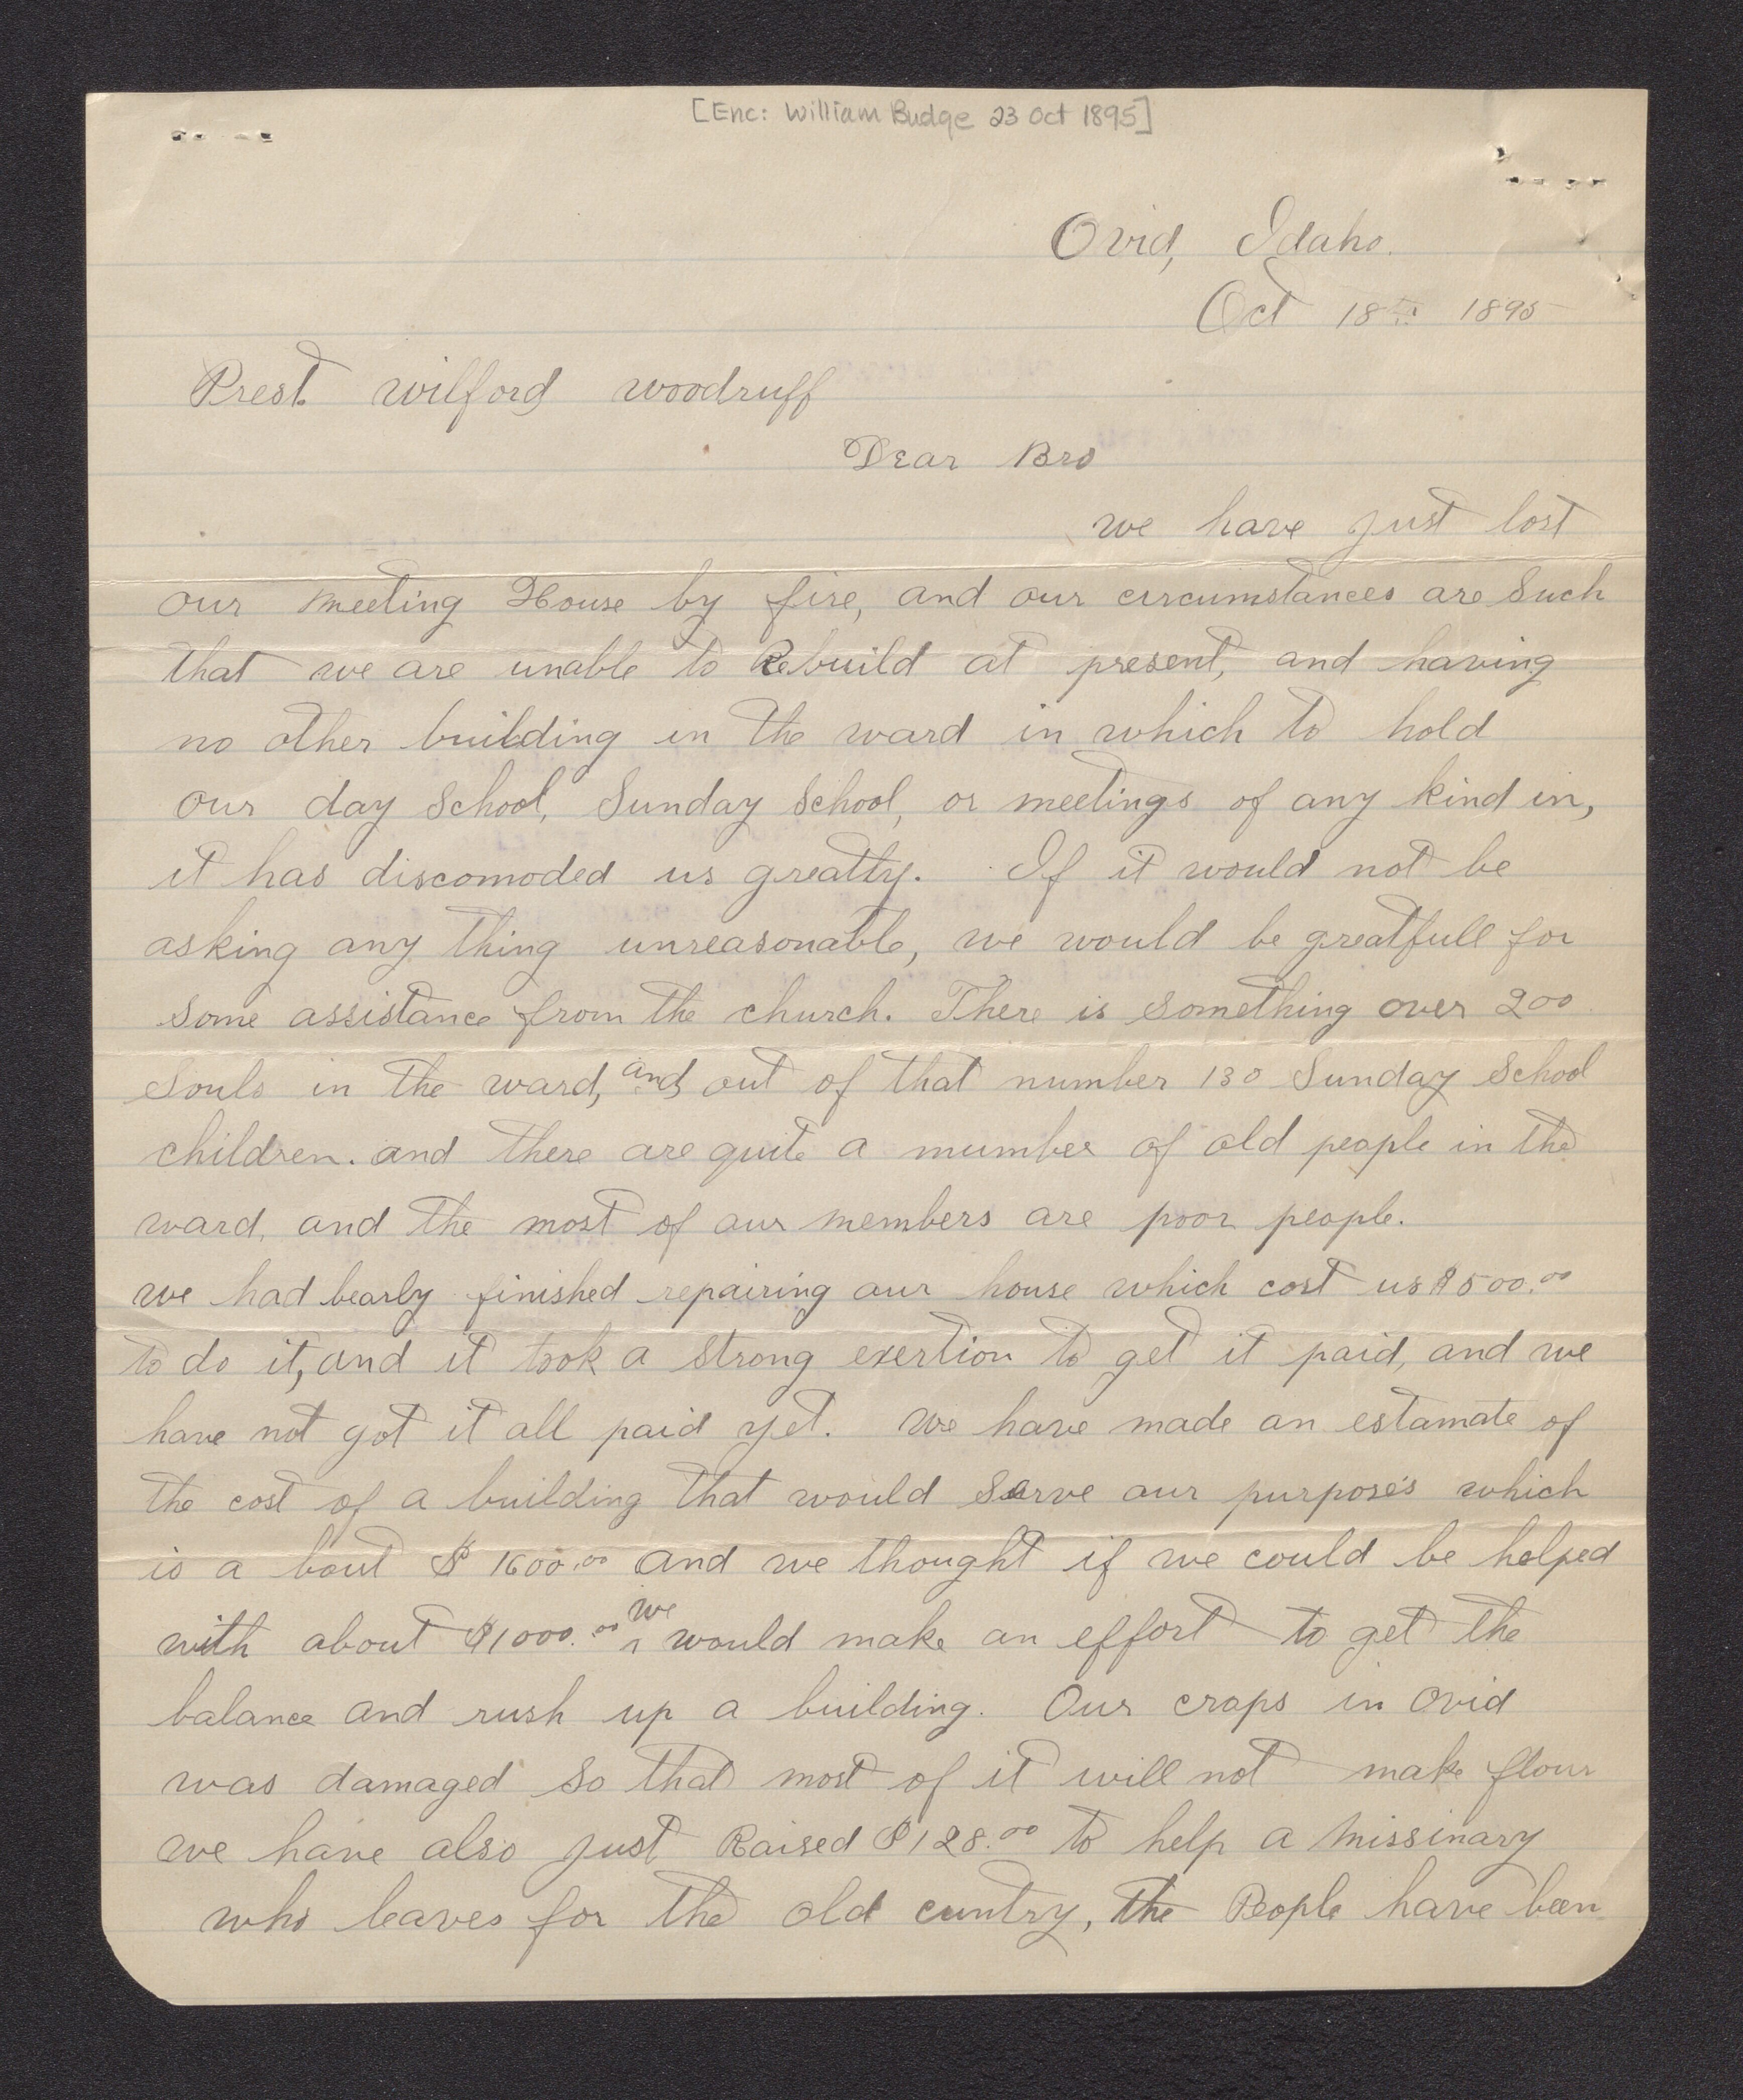 [Enc: William Budge 23 Oct 1895]
Ovid, Idaho.
Oct 18th 1895
Prest. wilford woodruff
Dear Bro
we have just lost
our meeting House by fire, and our circumstances are Such
that we are unable to Rebuild at present, and having
no other building in the ward in which to hold
our day School, Sunday School, or meetings of any kind in,
it has discomoded us greatly. If it would not be
asking any thing unreasonable, we would be greatfull for
some assistance from the church. There is something over 200
Souls in the ward, and out of that number 130 Sunday School
children. and there are quite a mumber of old people in the
ward, and the most of our members are poor people.
we had bearly finished repairing our house which cost us $500.00
to do it, and it took a strong exertion to get it paid, and we
have not got it all paid yet. we have made an estamate of
the cost of a building that would Serve our purposes which
is a bout $1600.00 and we thought if we could be helped
with about $1000.00 we would make an effort to get the
balance and rush up a building. Our crops in Ovid
was damaged so that most of it will not make flour
we have also just Raised $128.00 to help a missinary
who leaves for the old cuntry, the People have been